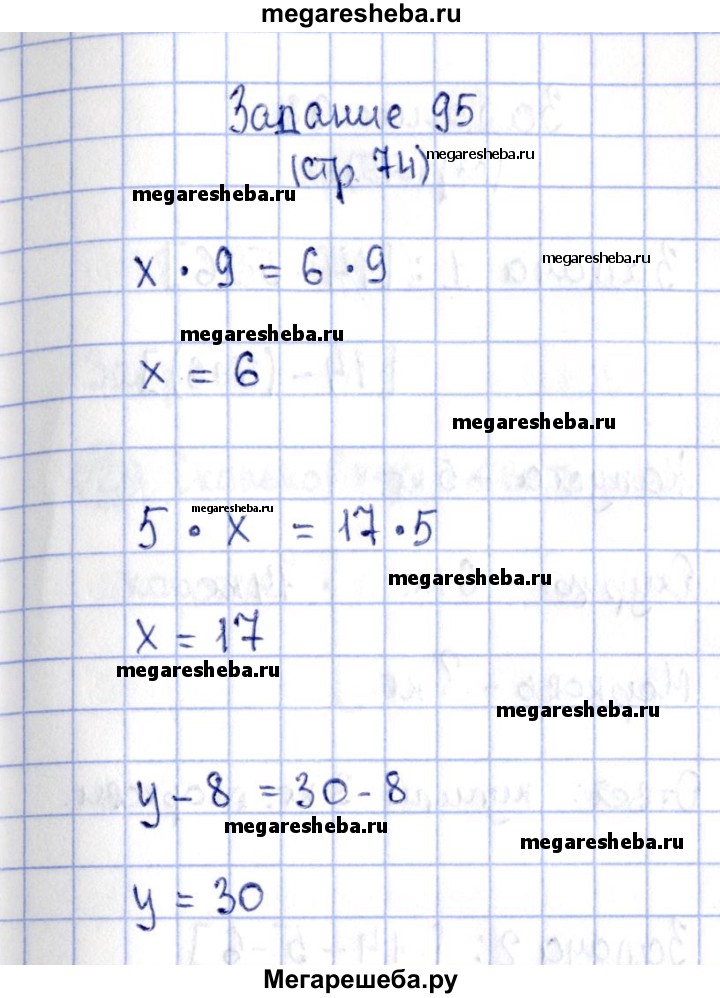 megaresheba.ru
Задание 95
(стр 74) megaresheba.ru
megaresheba.ru
x · 9 = 6 · 9 megaresheba.ru
megaresheba.ru
x = 6
megaresheba.ru
megaresheba.ru
5 · x = 17 · 5
megaresheba.ru
x = 17
megaresheba.ru
megaresheba.ru
y - 8 = 30 - 8
megaresheba.ru
megaresheba.ru
y = 30
Мегарешеба.ру